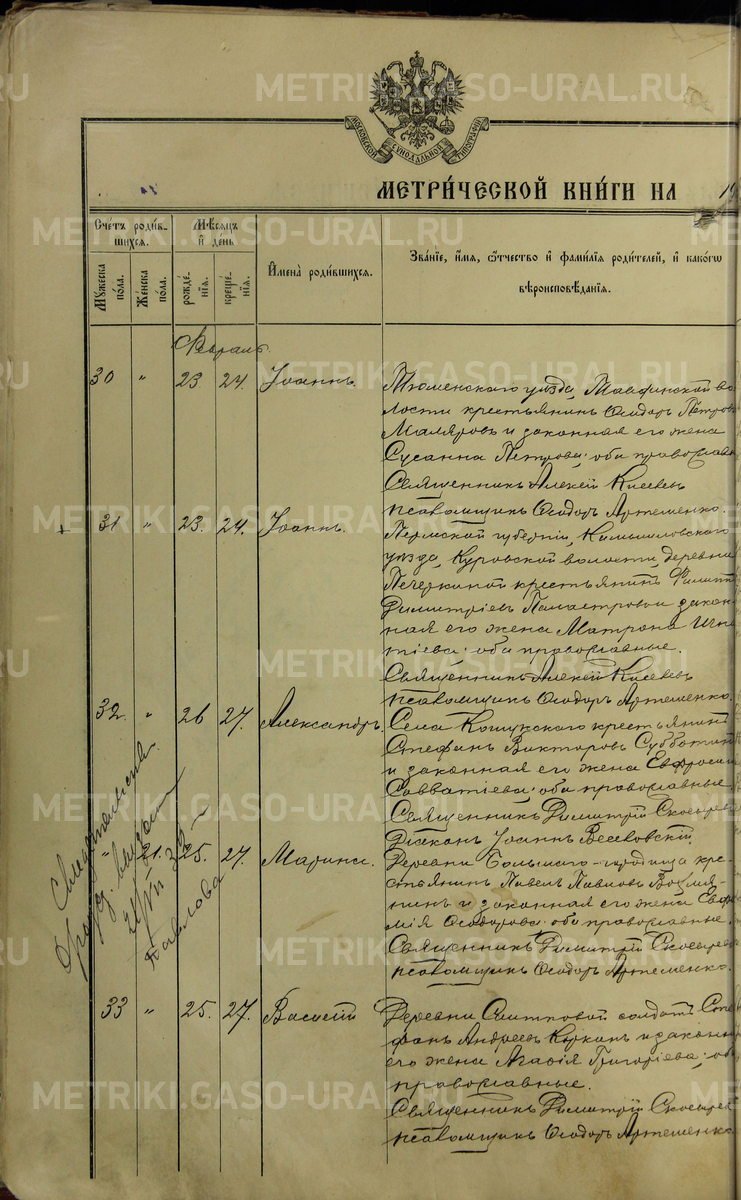 МОСКОВСКОЙ СУНОДАЛЬНОЙ ТИПОГРАФІИ
МЕТРИ́ЧЕСКОЙ КНИ́ГИ НА 19
Сче́тъ роди́в-
шихся.
Мѣ́сяцъ
и҆ де́нь
Му́жеска
по́ла.
Же́нска
по́ла.
рожде́-
нїя.
креще́-
нїя.
И҆мена̀ роди́вшихся.
Зва́нїе, и҆́мя, ѻ҆́тчество и҆ фами́лїя роди́телей, и҆ како́гѡ
вѣроисповѣ́данїя.
Февраль
30 " 23 24 Іоаннъ.
Тюменскаго уѣзда, во-
лости крестьянинъ Ѳеодоръ Петровъ
Маляровъ и законная его жена
Сусанна Петрова; оба православн
Священникъ Алексій Киселевъ
псаломщикъ Ѳеодоръ Артеменко.
31 " 23. 24. Іоаннъ.
Пермской губерніи, Камышловскаго
уѣзда, Куровской волости, деревни
Печеркиной крестьянинъ Филипп
Димитріевъ и закон-
ная его жена Матрона Игна
тіева; оба православные.
Священникъ Алексій Киселевъ
псаломщикъ Ѳеодоръ Артеменко.
32. " 26 27. Александръ.
Села Кошукскаго крестьянинъ
Стефанъ Викторовъ Субботин
и законная его жена Евфроси
Савватіева; оба православные
Священникъ Димитрій Скосырев
Діаконъ Іоаннъ
" 21. 25. 27. Марина.
Деревни Большаго-городища кре-
стьянинъ Павелъ Павловъ Вохмя-
нинъ и законная его жена Евфи
мія Ѳеодорова; оба православные.
Священникъ Димитрій Скосырев
псаломщикъ Ѳеодоръ Артеменко.
33 " 25. 27. Василій
Деревни солдатъ Сте
фанъ Андреевъ Куркинъ и законн
его жена Агафія Григоріева; об
православные.
Священникъ Димитрій Скосырев
псаломщикъ Ѳеодоръ Артеменко.
Свидѣтельство
Павлова
METRIKI.GASO-URAL.RU